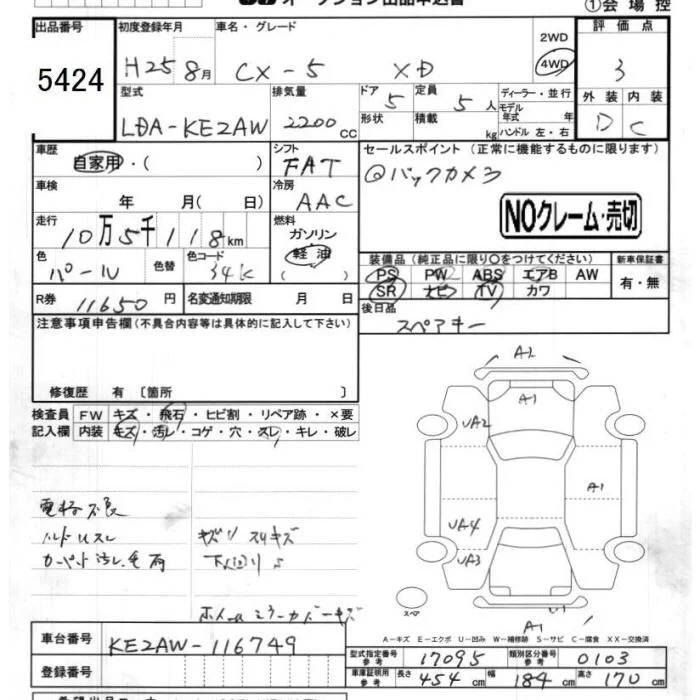 オークション出品申込書
①会場控
出品番号 初度登録年月 車名・グレード 評価点
5424 H25 8月 CX-5 XD 2WD 4WD 3
型式 排気量 ドア 定員 ディーラー・並行 外装 内装
LDA-KE2AW 2200cc 5 5人 モデル年式 年 D C
形状 積載 kg ハンドル 左・右
車歴 シフト セールスポイント (正常に機能するものに限ります)
自家用・( ) FAT ◎バックカメラ
車検 年 月( 日) 冷房 AAC
NOクレーム・売切
走行 10万5千118km 燃料 ガソリン 軽油 ( )
装備品 (純正品に限り○をつけてください) 新車保証書
色 パール 色替 色コード 34K
PS PW ABS エアB AW 有・無
SR ナビ TV カワ
R券 11650円 名変通知期限 月 日
後日品 スペアキー
注意事項申告欄 (不具合内容等は具体的に記入して下さい)
修復歴 有 〔箇所 〕
検査員 FW キズ・飛石・ヒビ割・リペア跡・×要
記入欄 内装 キズ・汚レ・コゲ・穴・スレ・キレ・破レ
A2
A1
UA2
A1
UA4
UA3
A1
スペア
カーペット汚レ
キズ スリキズ
ホイール ミラーカバーキズ
A-キズ E-エクボ U-凹み W-補修跡 S-サビ C-腐食 XX-交換済
車台番号 KE2AW-116749
型式指定番号 参考 17095 類別区分番号 参考 0103
登録番号
車庫証明用 参考 長さ 454cm 幅 184cm 高さ 170cm